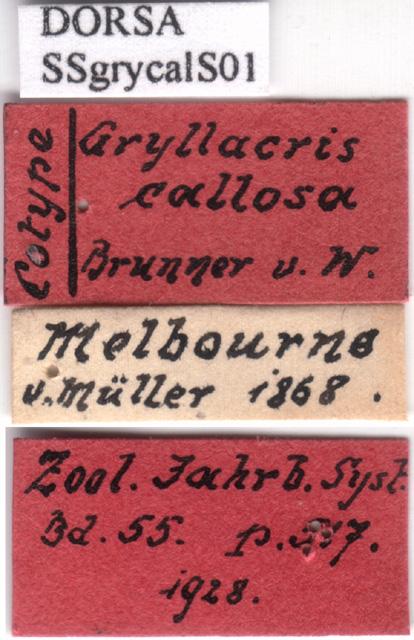 DORSA
SSgrycalS01
Cotype
Gryllacris
callosa
Brunner v. W.
Melbourne
v. Müller 1868.
Zool. Jahrb. Syst.
Bd. 55. p.
1928.